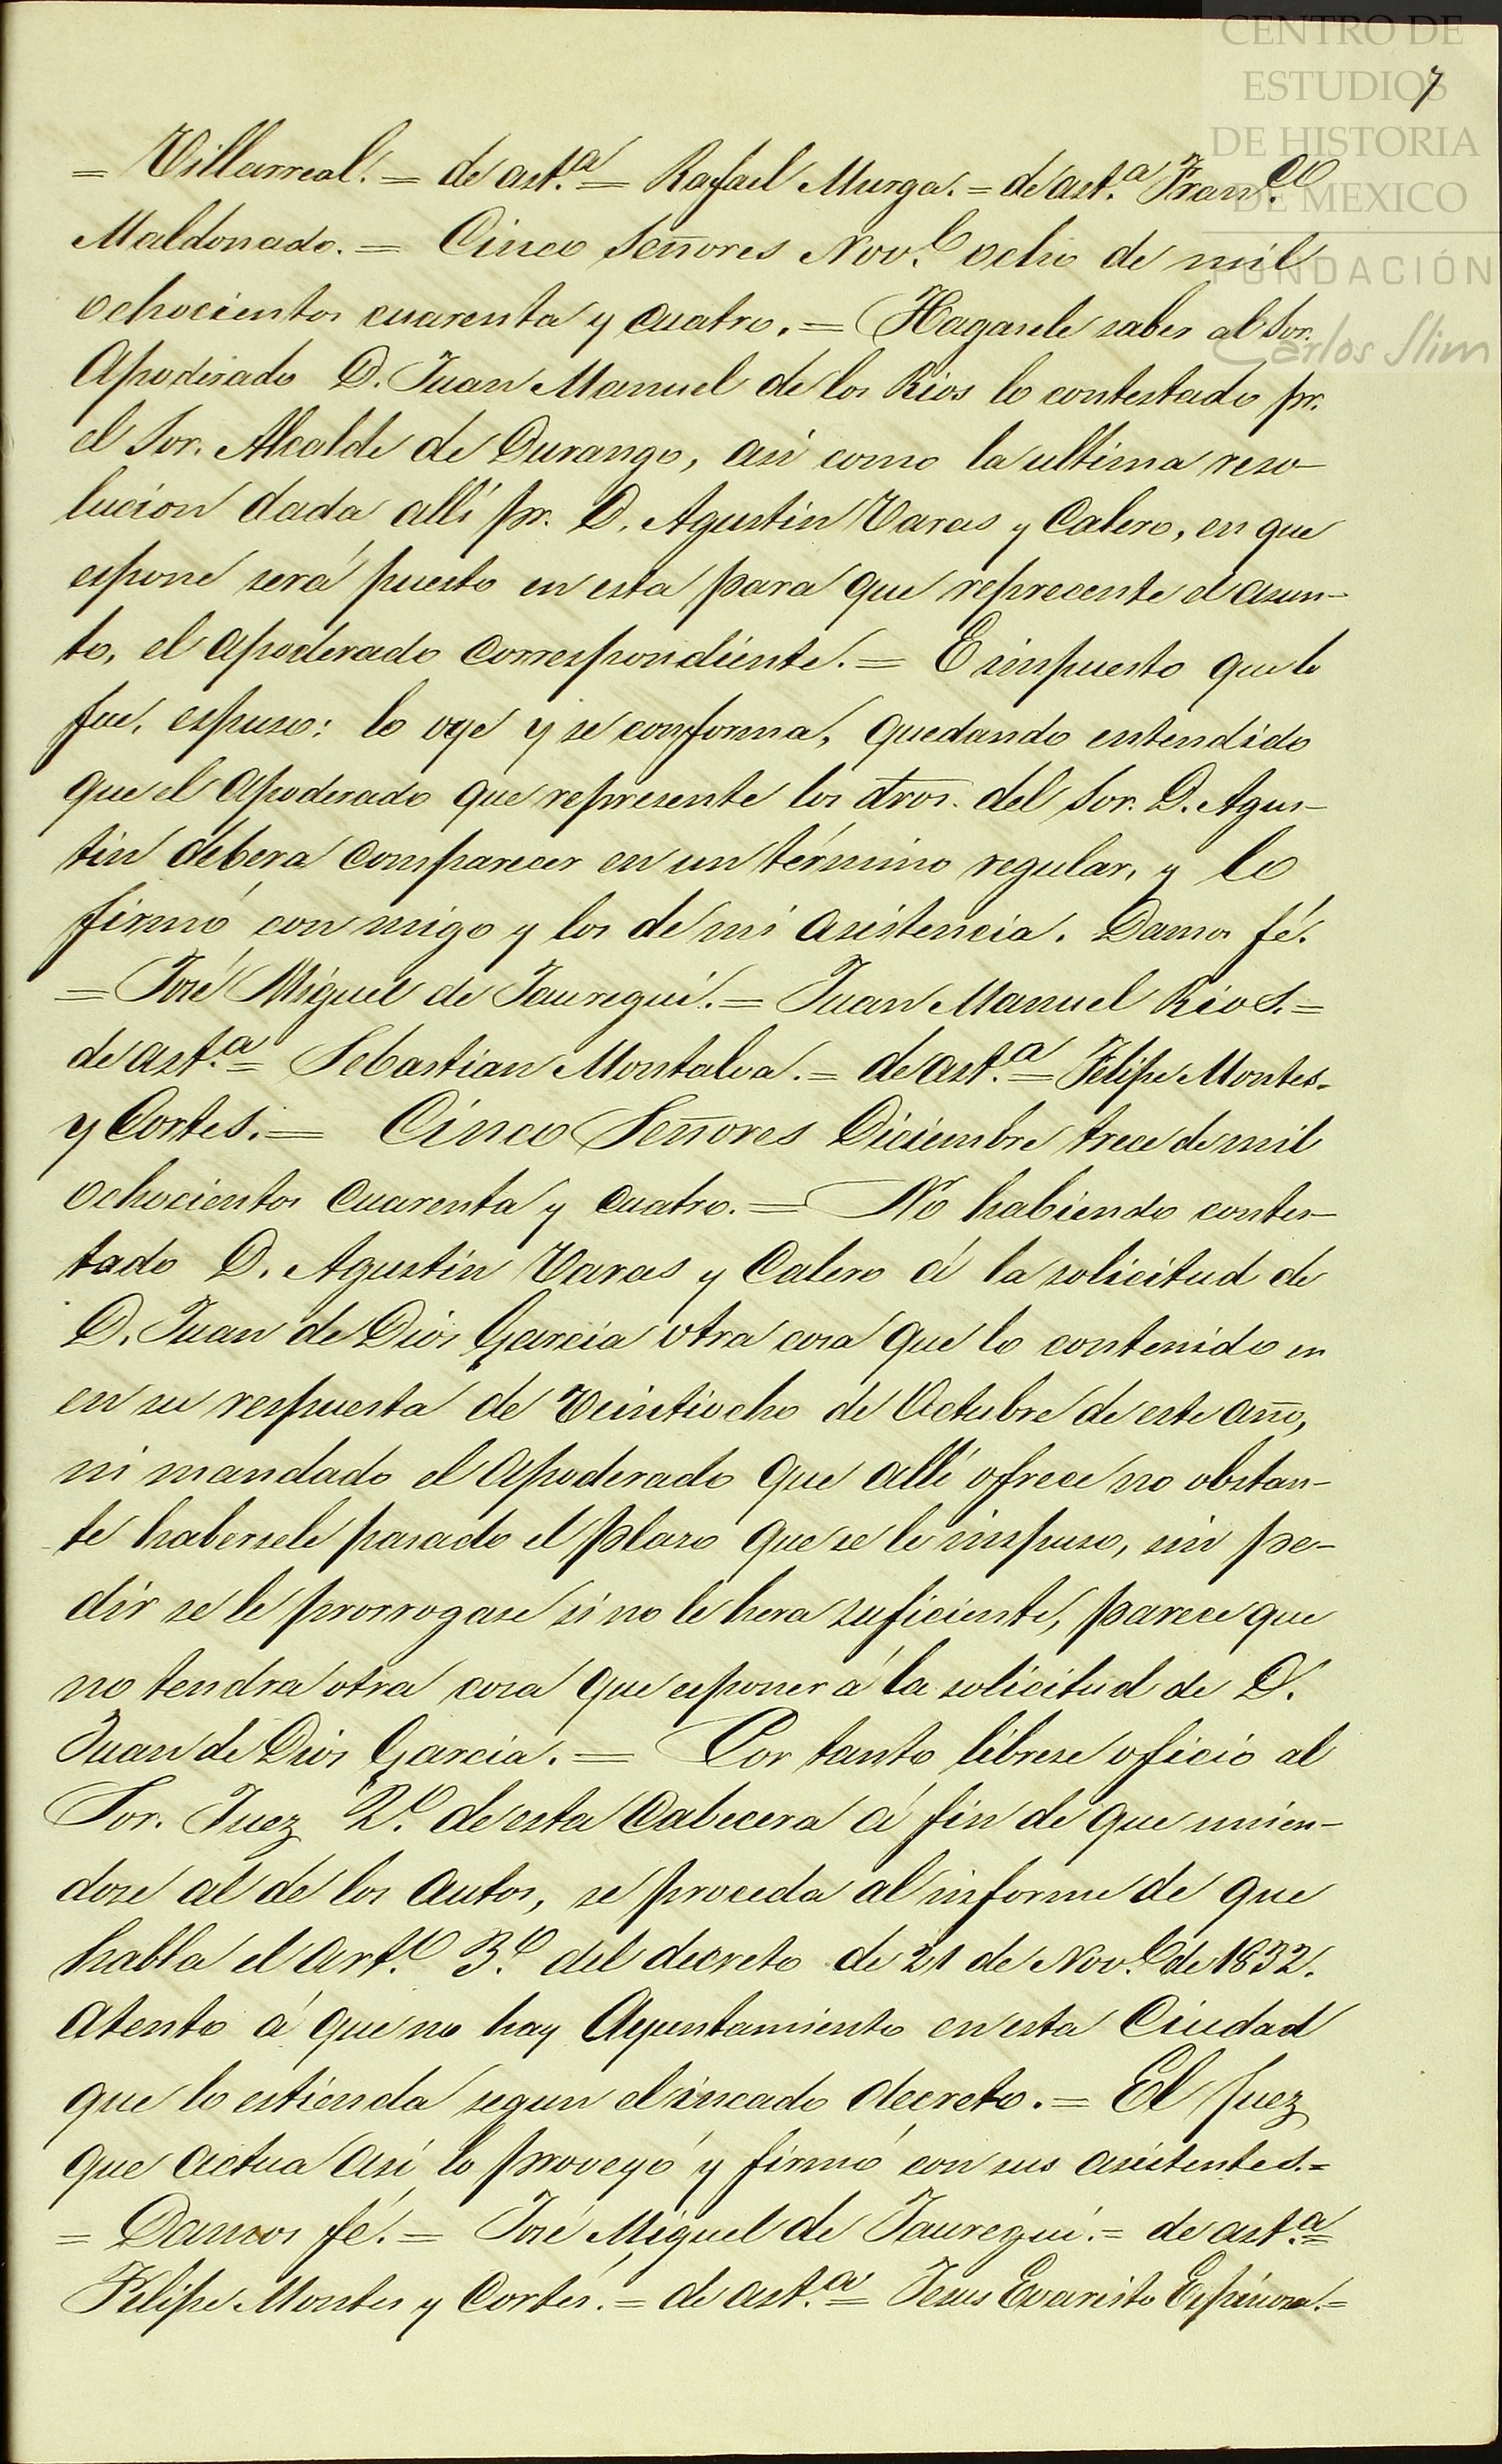 CENTRO DE
ESTUDIOS
DE HISTORIA
DE MEXICO
FUNDACIÓN
Carlos Slim
7
= Villarreal. = de ast.ª = Rafael Murga. = de ast.ª Fran.co
Maldonado. = Cinco Señores Nov.e ocho de mil
ochocientos cuarenta y cuatro. = Hagasele saber al Sor.
Apoderado D. Juan Manuel de los Rios lo contestado pr.
el Sor. Alcalde de Durango, asi como la ultima reso-
lucion dada allí pr. D. Agustin Varas y Calero, en que
espone será puesto en esta para que reprecente el asun-
to, el apoderado correspondiente. = E impuesto que le
fue, espuso: lo oye y se conforma, quedando entendido
que el apoderado que represente los dros. del Sor. D. Agus-
tin debera comparecer en un término regular, y lo
firmó con migo y los de mi asistencia. Damos fé.
= José Miguel de Jauregui. = Juan Manuel Rios. =
de ast.ª = Sebastian Montalva. = de ast.ª = Felipe Montes
y Cortes. = Cinco Señores Diciembre trece de mil
ochocientos cuarenta y cuatro. = No habiendo contes-
tado D. Agustin Varas y Calero á la solicitud de
D. Juan de Dios Garcia otra cosa que lo contenido en
en su respuesta de veintiocho de Octubre de este año,
ni mandado el apoderado que allí ofrece no obstan-
te habersele pasado el plazo que se le impuso, sin pe-
dir se le prorrogase si no le hera suficiente, parece que
no tendra otra cosa que esponer á la solicitud de D.
Juan de Dios Garcia. = Por tanto librese oficio al
Sor. Juez 2.º de esta Cabecera á fin de que unien-
dose al de los autos, se proceda al informe de que
habla el art.º 3.º del decreto de 21 de Nov.e de 1832.
atento á que no hay Ayuntamiento en esta Ciudad
que lo estienda segun el incado decreto. = El Juez
que actua asi lo proveyó y firmó con sus asistentes. =
= Damos fé. = José Miguel de Jauregui. = de ast.ª =
Felipe Montes y Cortés. = de ast.ª = Jesus Evaristo Espinosa. =